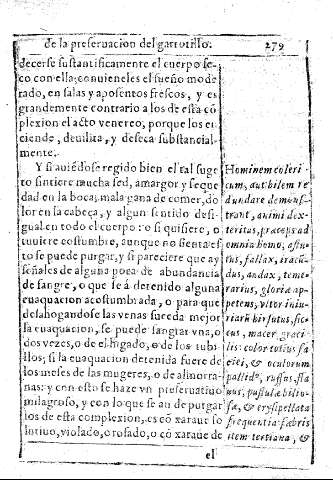 de la preseruacion del garrotillo. 279
decerse sustantificamente el cuerpo se-
co con ella; conuieneles el sueño mode
rado, en salas y aposentos frescos, y es
grandemente contrario a los de esta cō
plexion el acto venereo, porque los en
ciende, deuilita, y deseca substancial-
mente.
Y si auiēdose regido bien el tal suge
to sintiere mucha sed, amargor y seque
dad en la boca, mala gana de comer, do
lor en la cabeça, y algun sentido desi-
gual en todo el cuerpo: o si quisiere, o
tuuiere costumbre, aunque no sienta es
to se puede purgar, y si pareciere que ay
señales de alguna poca de abundancia
de sangre, o que seá detenido alguna
euaquacion acostumbrada, o para que
desahogandose las venas suceda mejor
la euaquacion, se puede sangrar vna, o
dos vezes, o de el higado, o de los tubi-
llos; si la euaquacion detenida fuere de
los meses de las mugeres, o de almorra-
nas: y con esto se haze vn preseruatiuo
milagroso, y con lo que se an de purgar
los de esta complexion, es cō xaraue so
lutiuo, violado, o rosado, o cō xaraue de
el
Hominem coleri
cum, aut bilem re
dundare demonst
rant, animi dex-
teritus, præceps ad
omnia homo, astu-
tus, fallax, iracū-
dus, audax, teme-
rarius, gloriæ ap-
petens, vitor iniu-
riarū hirsutus, sic-
cus, macer, graci-
lis: color totius fa
ciei, & oculorum
pallidꝰ, ruffus, fla
uus, pustulæ bilio-
sæ, & erysipellata
frequentia fæbris
item tertiana, &